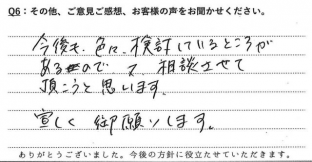 Q6：その他、ご意見ご感想、お客様の声をお聞かせください。
今後も、色々、検討しているところが
あるので 又 相談させて
頂こうと思います。
宜しく御願いします。
ありがとうございました。今後の方針に役立たせていただきます。